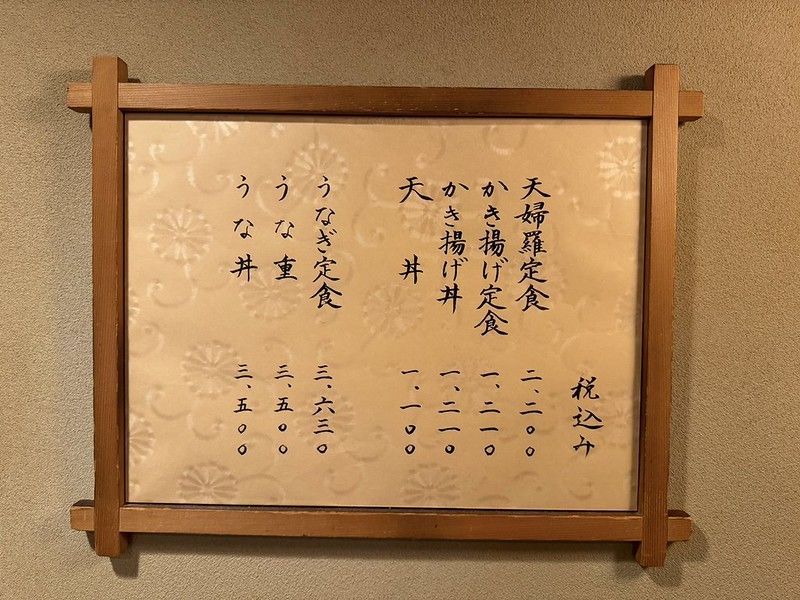 税込み
天婦羅定食 二、二〇〇
かき揚げ定食 一、二一〇
かき揚げ丼 一、二一〇
天丼 一、一〇〇
うなぎ定食 三、六三〇
うな重 三、五〇〇
うな丼 三、五〇〇